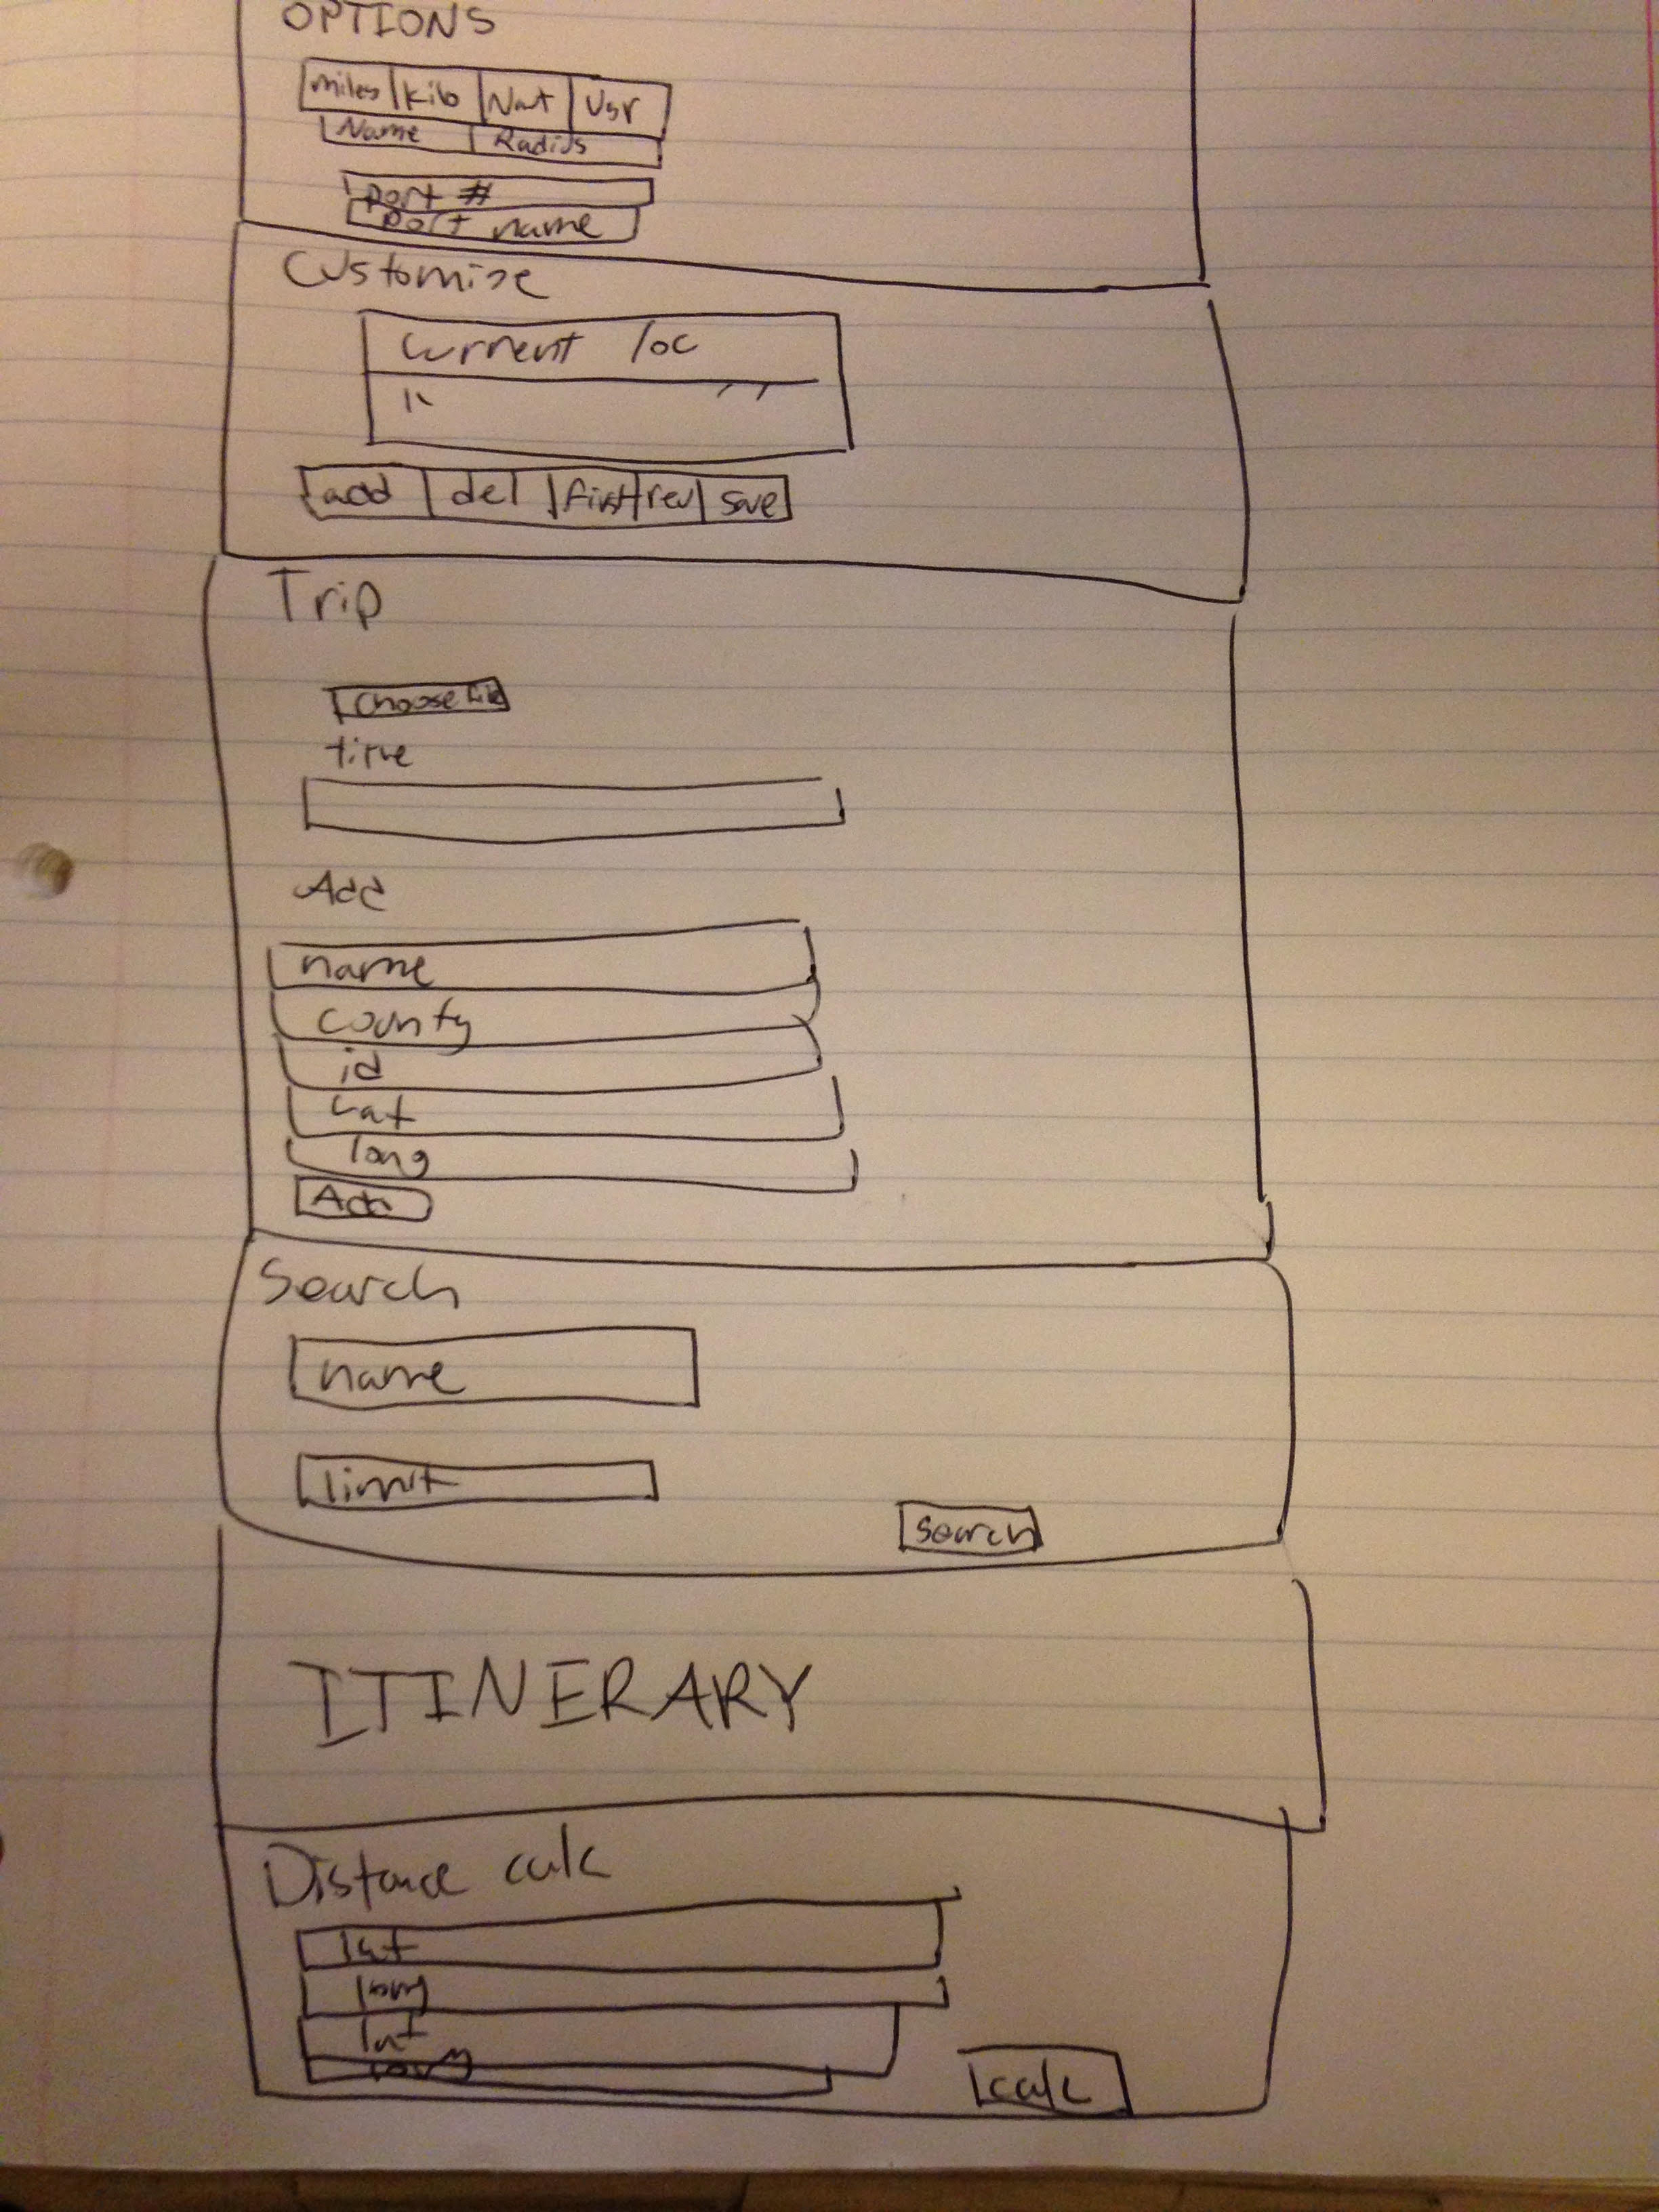 OPTIONS
miles kilo Naut Usr
Name Radius
port #
port name
Customize
Current loc
add del first rev save
Trip
Choose file
title
Add
name
county
id
Lat
long
Add
Search
name
limit
search
ITINERARY
Distance calc
lat
long
lat
long
calc